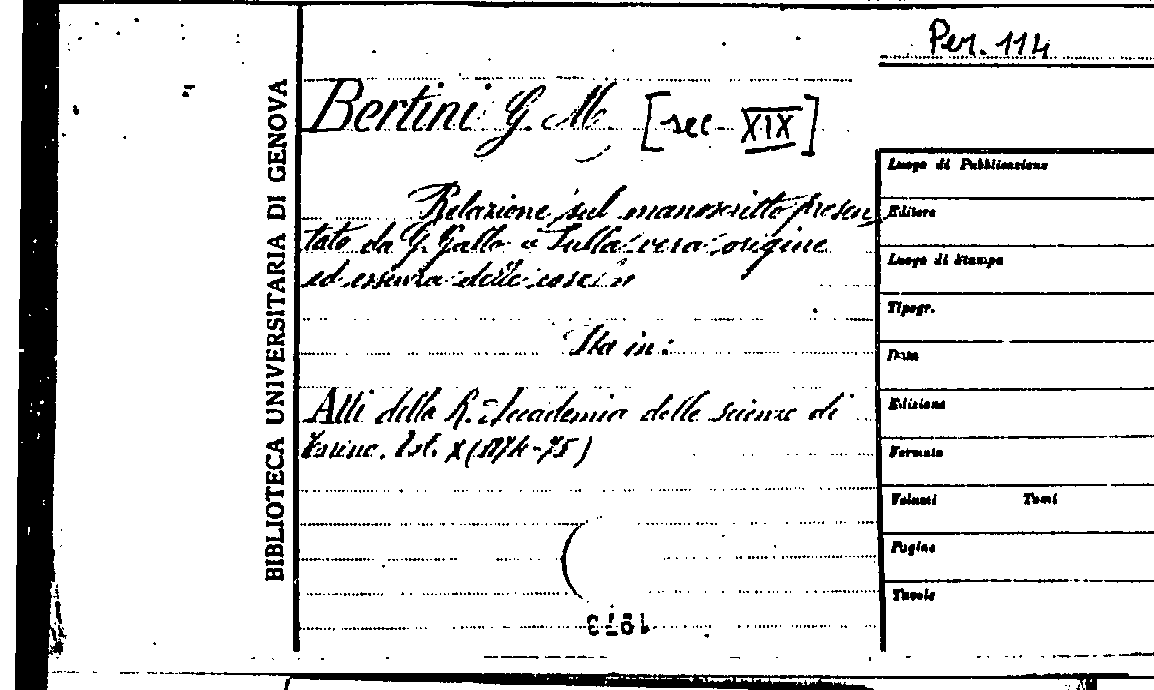 Per. 114
BIBLIOTECA UNIVERSITARIA DI GENOVA
Bertini G. M. [sec XIX]
Relazione sul manoscritto presen
tato da G. Gallo "Sulla vera origine
ed essenza delle cose"
Sta in:
Atti della R. Accademia delle scienze di
Torino. Vol. X (1874-75)
1973
Luogo di Pubblicazione
Editore
Luogo di Stampa
Tipogr.
Data
Edizione
Formato
Volumi Tomi
Pagine
Tavole